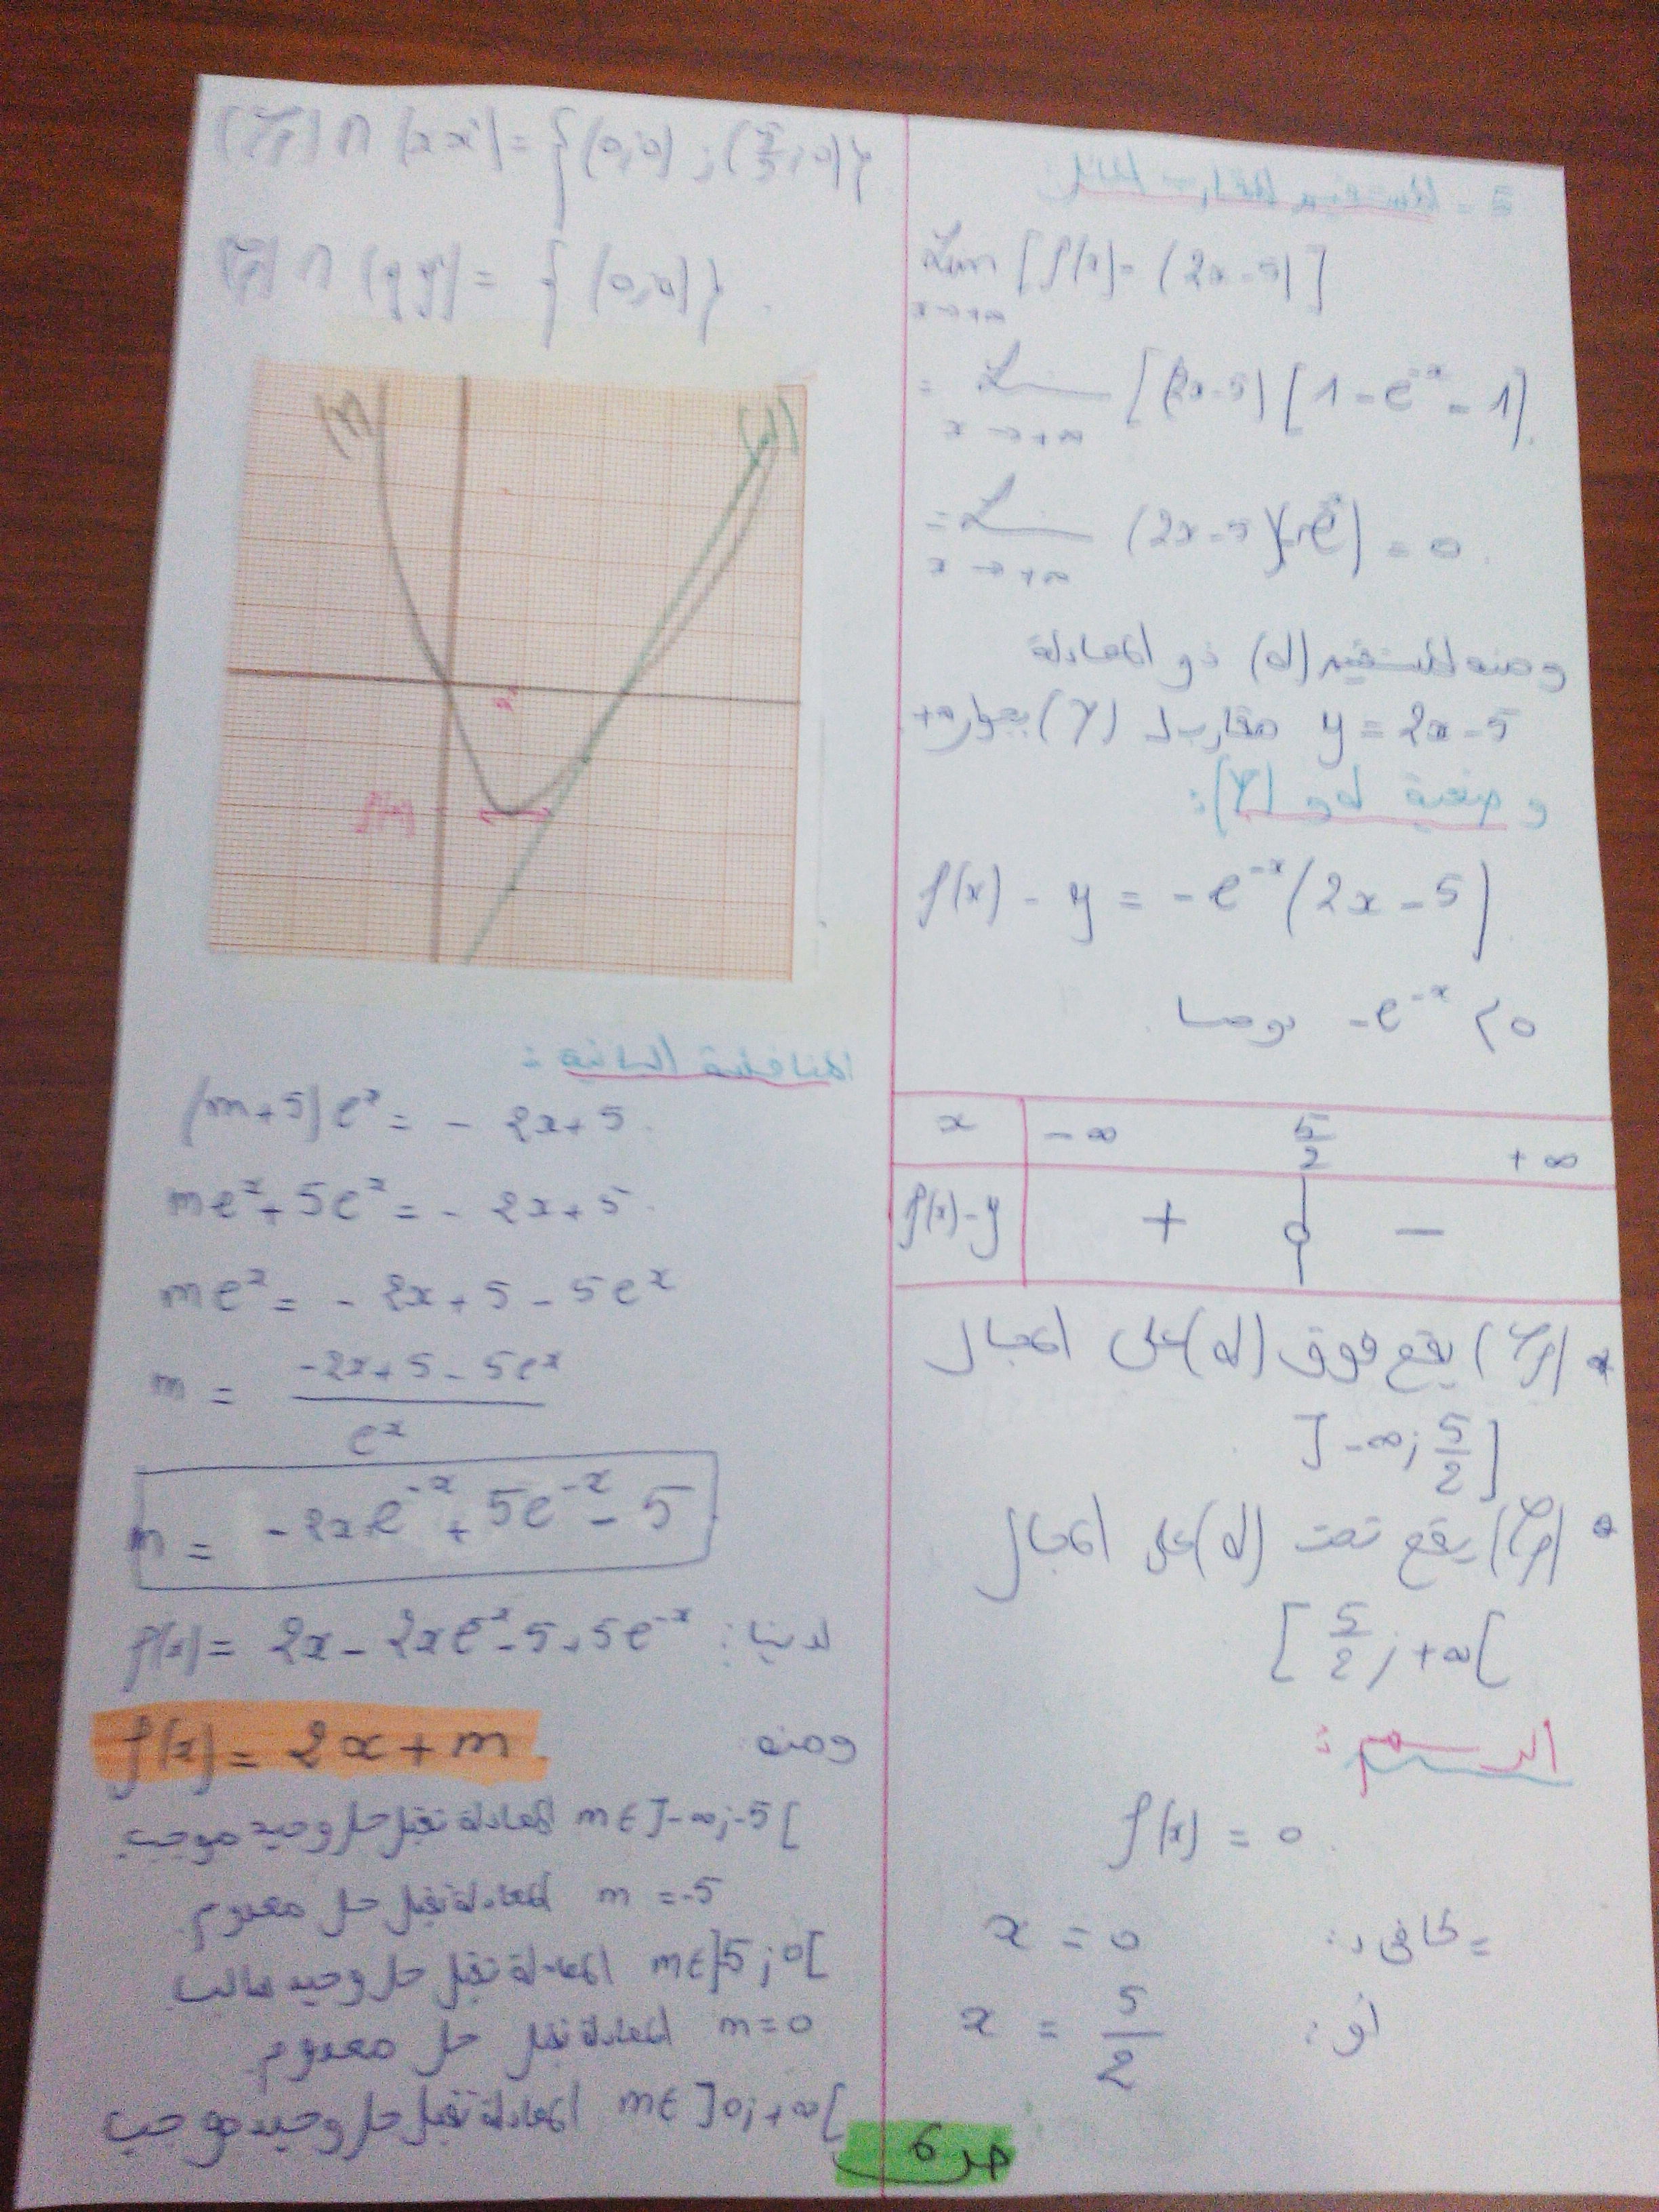 5 - المستقيم المقارب المائل:
Lim [f(x) - (2x-5)]
x→+∞
= L [(2x-5)[1-e^-x - 1]
x→+∞
= L (2x-5)(-e^-x) = 0
x→+∞
ومنه المستقيم (d) ذو المعادلة
y = 2x-5 مقارب لـ (γ) بجوار +∞
وضعية d و (γ):
f(x) - y = -e^-x (2x-5)
بوصا -e^-x < 0
x -∞ 5/2 +∞
f(x)-y + 0 -
* (γf) يقع فوق (d) على المجال
]-∞; 5/2]
* (γf) يقع تحت (d) على المجال
[5/2; +∞[
الرسم:
f(x) = 0
يكافئ: x = 0
أو: x = 5/2
(γf) ∩ (xx') = {(0;0) ; (5/2;0)}
(γf) ∩ (yy') = {(0;0)}
(γ) (d)
α
f(α)
المناقشة البيانية:
(m+5)e^x = -2x+5
me^x + 5e^x = -2x+5
me^x = -2x+5-5e^x
m = (-2x+5-5e^x)/e^x
m = -2xe^-x + 5e^-x - 5
لدينا: f(x) = 2x - 2xe^-x - 5 + 5e^-x
ومنه f(x) = 2x + m
m∈]-∞;-5[ المعادلة تقبل حل وحيد موجب
m = -5 المعادلة تقبل حل معدوم
m∈]5;0[ المعادلة تقبل حل وحيد سالب
m=0 المعادلة تقبل حل معدوم
m∈]0;+∞[ المعادلة تقبل حل وحيد موجب
6